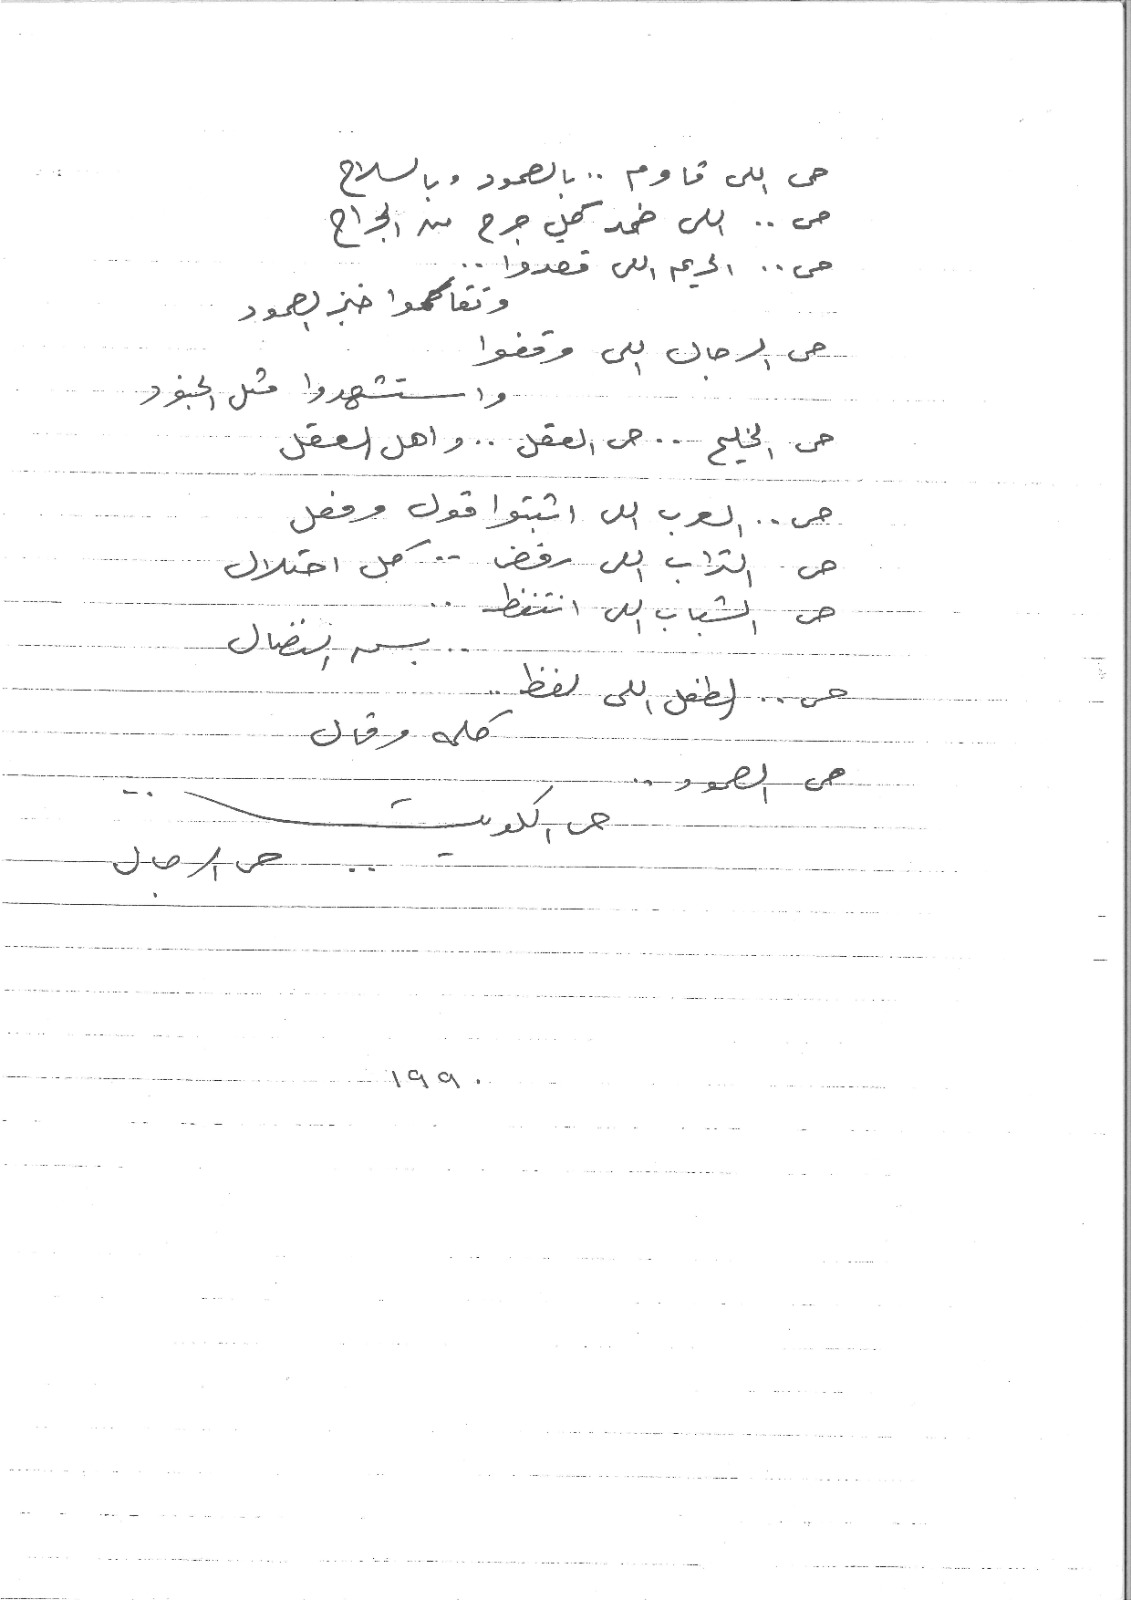 حى اللى قاوم .. بالصمود وبالسلاح
حى .. اللى ضمد كل جرح من الجراح
حى .. الحريم اللى قعدوا ..
وتقاسموا خبز الصمود
حى الرجال اللى وقفوا
واستشهدوا مثل الجنود
حى الخليج ... حى العقل .. واهل العقل
حى .. العرب اللى اثبتوا قول وفعل
حى التراب اللى رفض .. كل احتلال
حى الشباب اللى انتفظ ..
.. بسمه النضال
حى .. الطفل اللى لفظ ..
كلمه وقال
حى الصمود ..
حى الكويت ..
.. حى الرجال
١٩٩٠